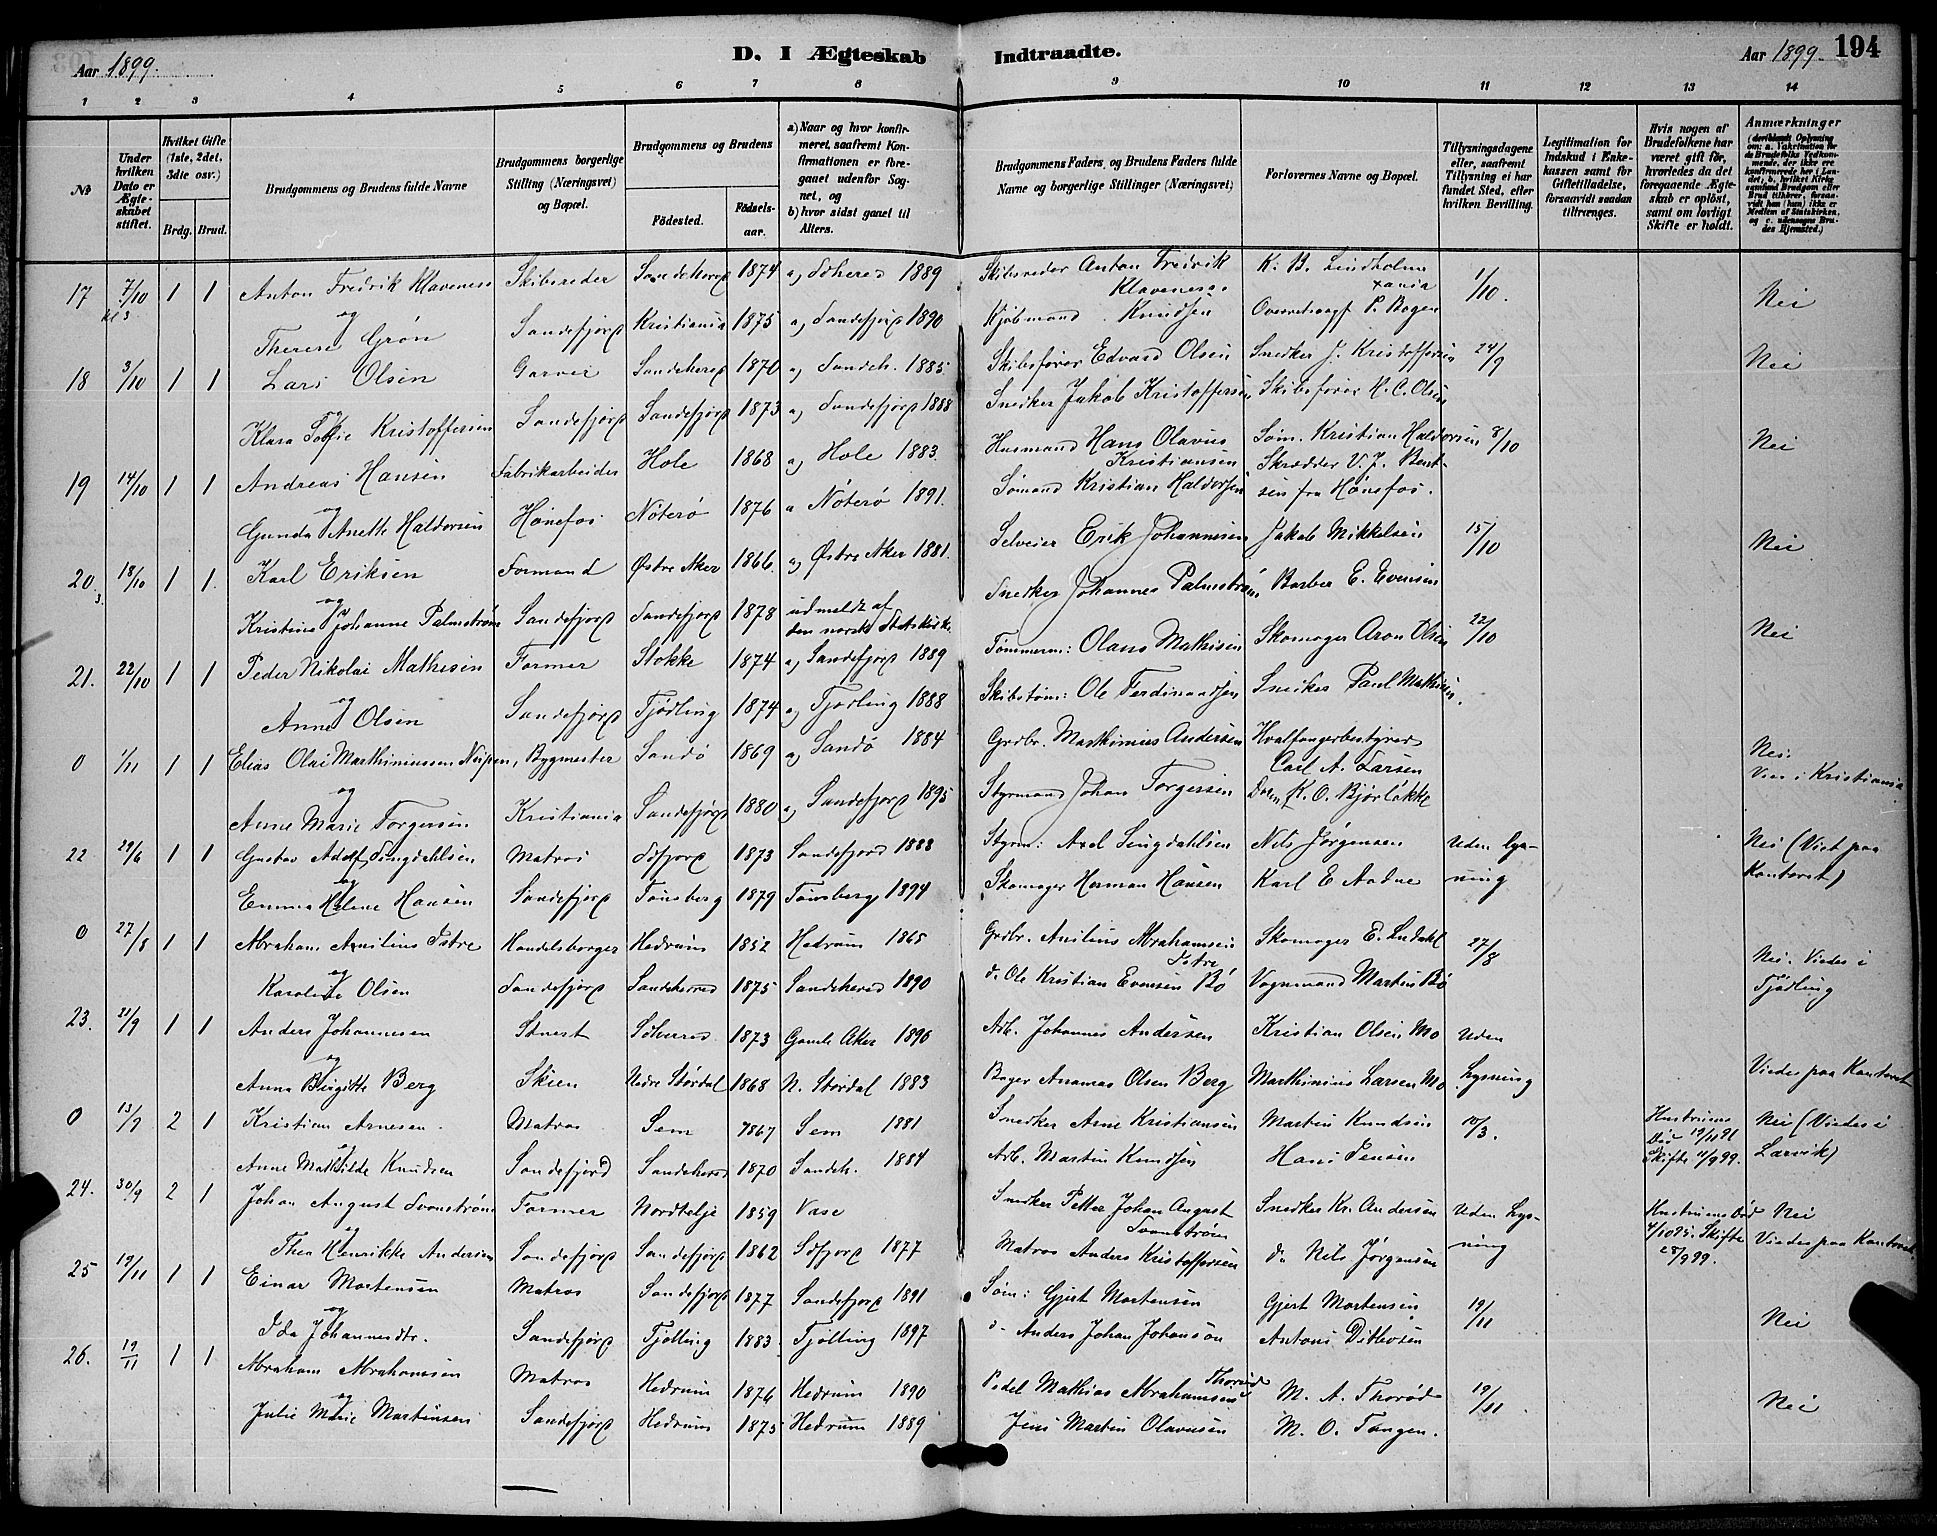 Aar 1899.
D. I Ægteskab Indtraadte.
Aar 1899. 194
1 2 3 4 5 6 7 8 9 10 11 12 13 14
№
Under hvilken Dato er Ægteskabet stiftet.
Hvilket Gifte (1ste, 2det, 3die osv.)
Brdg. Brud.
Brudgommens og Brudens fulde Navne
Brudgommens borgerlige Stilling (Næringsvei) og Bopæl.
Brudgommens og Brudens
Fødested. Fødselsaar.
a) Naar og hvor konfirmeret, saafremt Konfirmationen er foregaaet udenfor Sognet, og
b) hvor sidst gaaet til Alters.
Brudgommens Faders og Brudens Faders fulde Navne og borgerlige Stillinger (Næringsvei)
Forlovernes Navne og Bopæl.
Tillysningsdagene eller, saafremt Tillysning ei har fundet Sted, efter hvilken Bevilling.
Legitimation for Indskud i Enkekassen samt for Giftetilladelse, forsaavidt saadan tiltrænges.
Hvis nogen af Brudefolkene har været gift før, hvorledes da det foregaaende Ægteskab er opløst, samt om lovligt Skifte er holdt.
Anmærkninger
17 7/10 kl 3 1 1 Anton Fredrik Klaveness Skibsreder Sandeherred 1874 a) Sdherred 1889 Skibsreder Anton Fredrik Klaveness. K. B. Lindholm 1/10. Nei
og Therese Grøn Sandefjord Kristiania 1875 a) Sandefjord 1890 Kjøbmand Knudsen P. Bogen Xania
18 3/10 1 1 Lars Olsen Garver Sandeherred 1870 a) Sandeh. 1885 Skibsfører Edvard Olsen Snedker J. Kristoffersen 24/9 Nei
og Klara Sofie Kristoffersen Sandefjord Sandefjord 1873 a) Sandefjord 1888 Snedker Jakob Kristoffersen Skibsfører K. C. Olsen
19 14/10 1 1 Andreas Hansen Fabrikarbeider Hole 1868 a) Hole 1883 Husmand Hans Olavus Kristiansen Søm. Kristian Haldorsen 8/10 Nei
og Gunda Anette Haldorsen Hønefos Nøterø 1876 a Nøterø 1891. Sømand Kristian Haldorsen Skrædder V. J. Bentsen fra Hønefos.
20. 18/10 1 1. Karl Eriksen Formand Østre Aker 1866 a) Østre Aker 1881. Selveier Erik Johannesen Jakob Mikkelsen 15/10 Nei
og Kristine Johanne Palmstrøm Sandefjord Sandefjord 1878 udmeldt af den norske Statskirke Snedker Johannes Palmstrøm, Barber E. Evensen
21. 22/10 1 1 Peder Nikolai Mathisen Former Stokke 1874 a) Sandefjord 1889 Tømmerm: Olaus Mathisen Skomager Aron Olsen 22/10 Nei
og Anne Olsen Sandefjord Tjødling 1874 a) Tjødling 1888 Skibstøm: Ole Ferdinandsen Snedker Paul Mathisen.
0 1/11 1 1 Elias Olai Marthiniussen Neipen, Bygmester Sandø 1869 a) Sandø 1884 Grdbr. Marthinius Andersen Hvalfangerbestyrer Carl A. Larsen Nei. Viet i Kristiania
og Anne Marie Torgersen Kristiania Sandefjord 1880 a) Sandefjord 1895 Styrmand Johan Torgersen K. O. Bjørløkke
22 29/6 1 1 Gustav Adolf Lingdahlsen Matros Sdfjord 1873 Sandefjord 1888 Styrm: Axel Lingdahlsen Nils Jørgensen Uden Lysning Nei (Viet paa Kontoret)
og Emma Helene Hansen Sandefjord Tønsberg 1879 Tønsberg 1894 Skomager Herman Hansen Karl E Aadne
0 27/8 1 1 Abraham Anilius Istre Handelsborger Hedrum 1852 Hedrum 1865 Grdbr. Anilius Abrahamsen Istre Skomager E. Lindahl 27/8 Nei. Viedes i Tjødling
og Karoline Olsen Sandefjord Sandeherred 1875 Sandeherred 1890 d. Ole Kristian Evensen Bø Vognmand Martin Bø
23. 21/9 1 1 Anders Johannesen Stuert Sdherred 1873 Gamle Aker 1890 Arb. Johannes Andersen Kristian Olsen Mo Uden Lysning Viedes paa Kontoret
og Anna Birgitte Berg Skien Nedre Størdal 1868 N. Størdal 1883 Bager Ananias Olsen Berg Marthinius Larsen Mo
0 13/9 2 1 Kristian Arnesen. Matros Sem 1867 Sem 1881 Snedker Arne Kristiansen Martin Knudsen 10/3. Hustruens Død 19/11 91 Skifte 11/9 99. Nei (Viedes i Larvik)
og Anne Mathilde Knudsen Sandefjord Sandeherred 1870 Sandeh. 1884 Arb. Martin Knudsen Hans Jensen
24. 30/9 2 1 Johan August Svanstrøm Former Nordtelje 1859 Vase Snedker Petter Johan August Svanstrøm Snedker Kr. Andersen Uden Lysning Hustruens Død 4/10 95. Skifte 28/9 99. Nei Viedes paa Kontoret
og Thea Henrikke Andersen Sandefjord Sandefjord 1862 Sdfjord 1877 Matros Anders Kristoffersen d. Nils Jørgensen
25 19/11 1 1 Einar Mortensen Matros Sandefjord 1877 Sandefjord 1891 Søm: Gjert Mortensen Gjert Mortensen 19/11 Nei
og Ida Johannesdtr. Sandefjord Tjølling 1883 Tjølling 1897 d. Anders Johan Johanson Antoni Ditlevsen
26. 19/11 1 1 Abraham Abrahamsen Matros Hedrum 1876 Hedrum 1890 Pedel Mathias Abrahamsen Thorød M. A. Thorød 19/11 Nei
og Julie Marie Martinsen Sandefjord Hedrum 1875 Hedrum 1889 Jens Martin Olavesen M. O. Tangen.